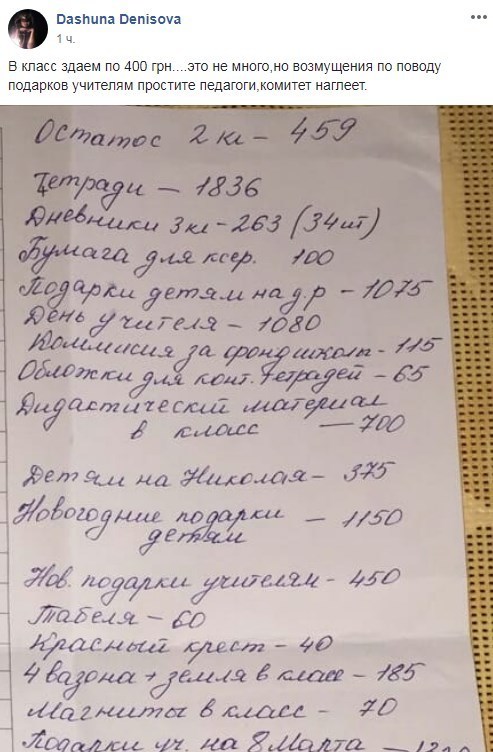 Dashuna Denisova
1 ч.
В класс здаем по 400 грн....это не много,но возмущения по поводу
подарков учителям простите педагоги,комитет наглеет.
Остаток 2 кл – 459
Тетради – 1836
Дневники 3кл – 263 (34шт)
Бумага для ксер. 100
Подарки детям на д.р – 1075
День учителя – 1080
Коммисия за фонд школы – 115
Обложки для конт. тетрадей – 65
Дидактический материал
в класс – 700
Детям на Николая – 375
Новогодние подарки – 1150
детям
Нов. подарки учителям – 450
Табеля – 60
Красный крест – 40
4 вазона + земля в класс – 185
Магниты в класс – 70
Подарки уч. на 8 Марта –